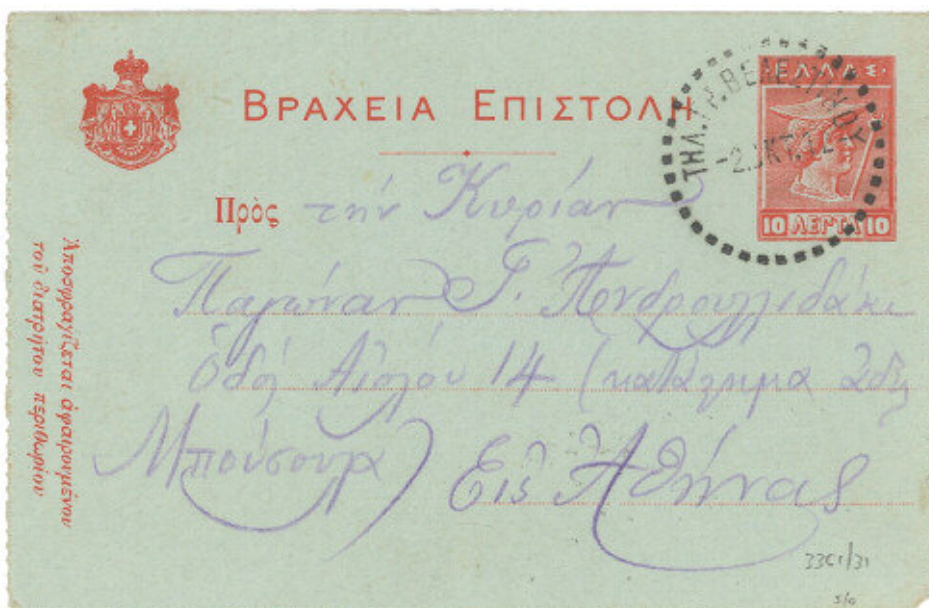 ΒΡΑΧΕΙΑ ΕΠΙΣΤΟΛΗ
ΕΛΛΑΣ
10 ΛΕΠΤΑ 10
ΤΗΛ. ΓΡ. ΒΕΛΕΣΤΙΝΟΥ
-2 ΟΚΤ. 12
Πρὸς τὴν Κυρίαν
Παγώναν Γ.
Ὁδὸς Αἰόλου 14 (κατάστημα
Μπούσουρα)
Εἰς Ἀθήνας
Ἀποσφραγίζεται ἀφαιρουμένου
τοῦ διατρήτου περιθωρίου
3361/31